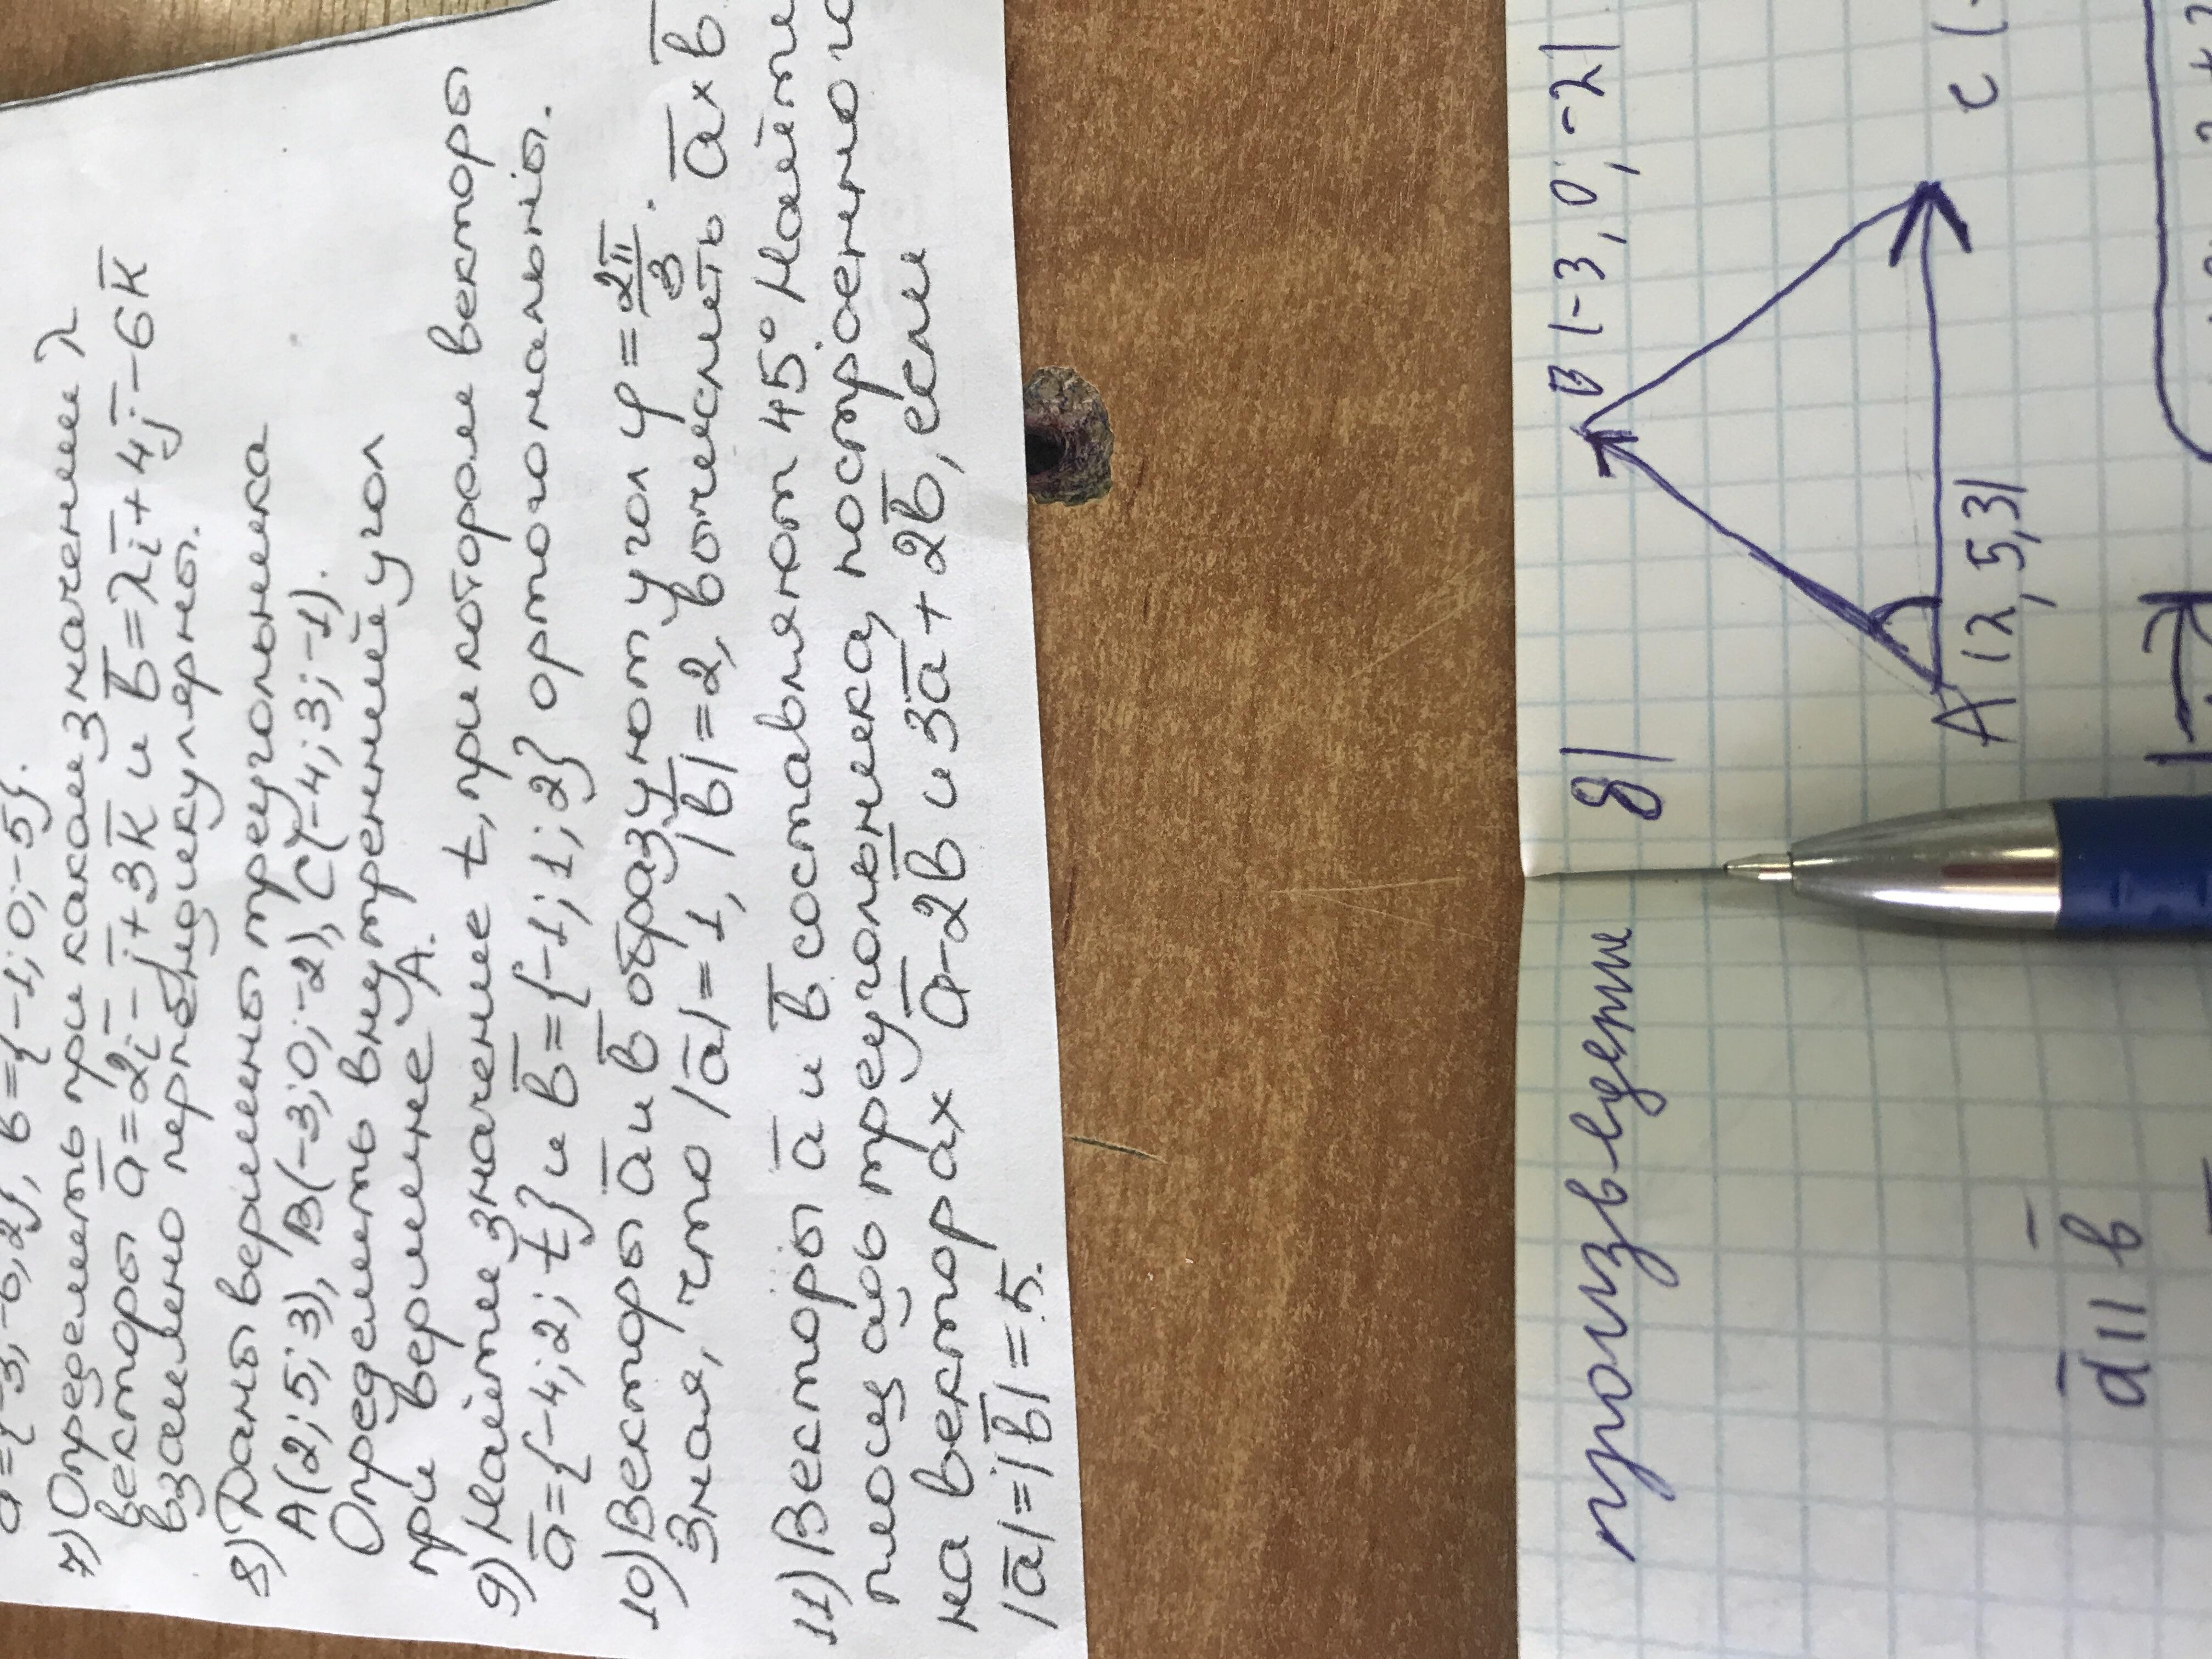 ā={-3;-6;2}, b={-1;0;-5}.
7) Определить при каком значении λ
векторы ā=2i̅-j̅+3k̅ и b̅=λi̅+4j̅-6k̅
взаимно перпендикулярны.
8) Даны вершины треугольника
A(2;5;3), B(-3;0;-2), C(-4;3;-1).
Определить внутренний угол
при вершине A.
9) Найти значение t, при котором векторы
ā={-4;2;t} и b̅={-1;1;2} ортогональны.
10) Векторы ā и b̅ образуют угол φ=2π/3.
Зная, что |ā|=1, |b̅|=2, вычислить ā×b̅
11) Векторы ā и b̅ составляют 45° Найти
площадь треугольника, построенного
на векторах ā-2b̅ и 3ā+2b̅, если
|ā|=|b̅|=5.
произведение
ā || b̅
8)
B(-3,0,-2)
A(2,5,3)
C(-